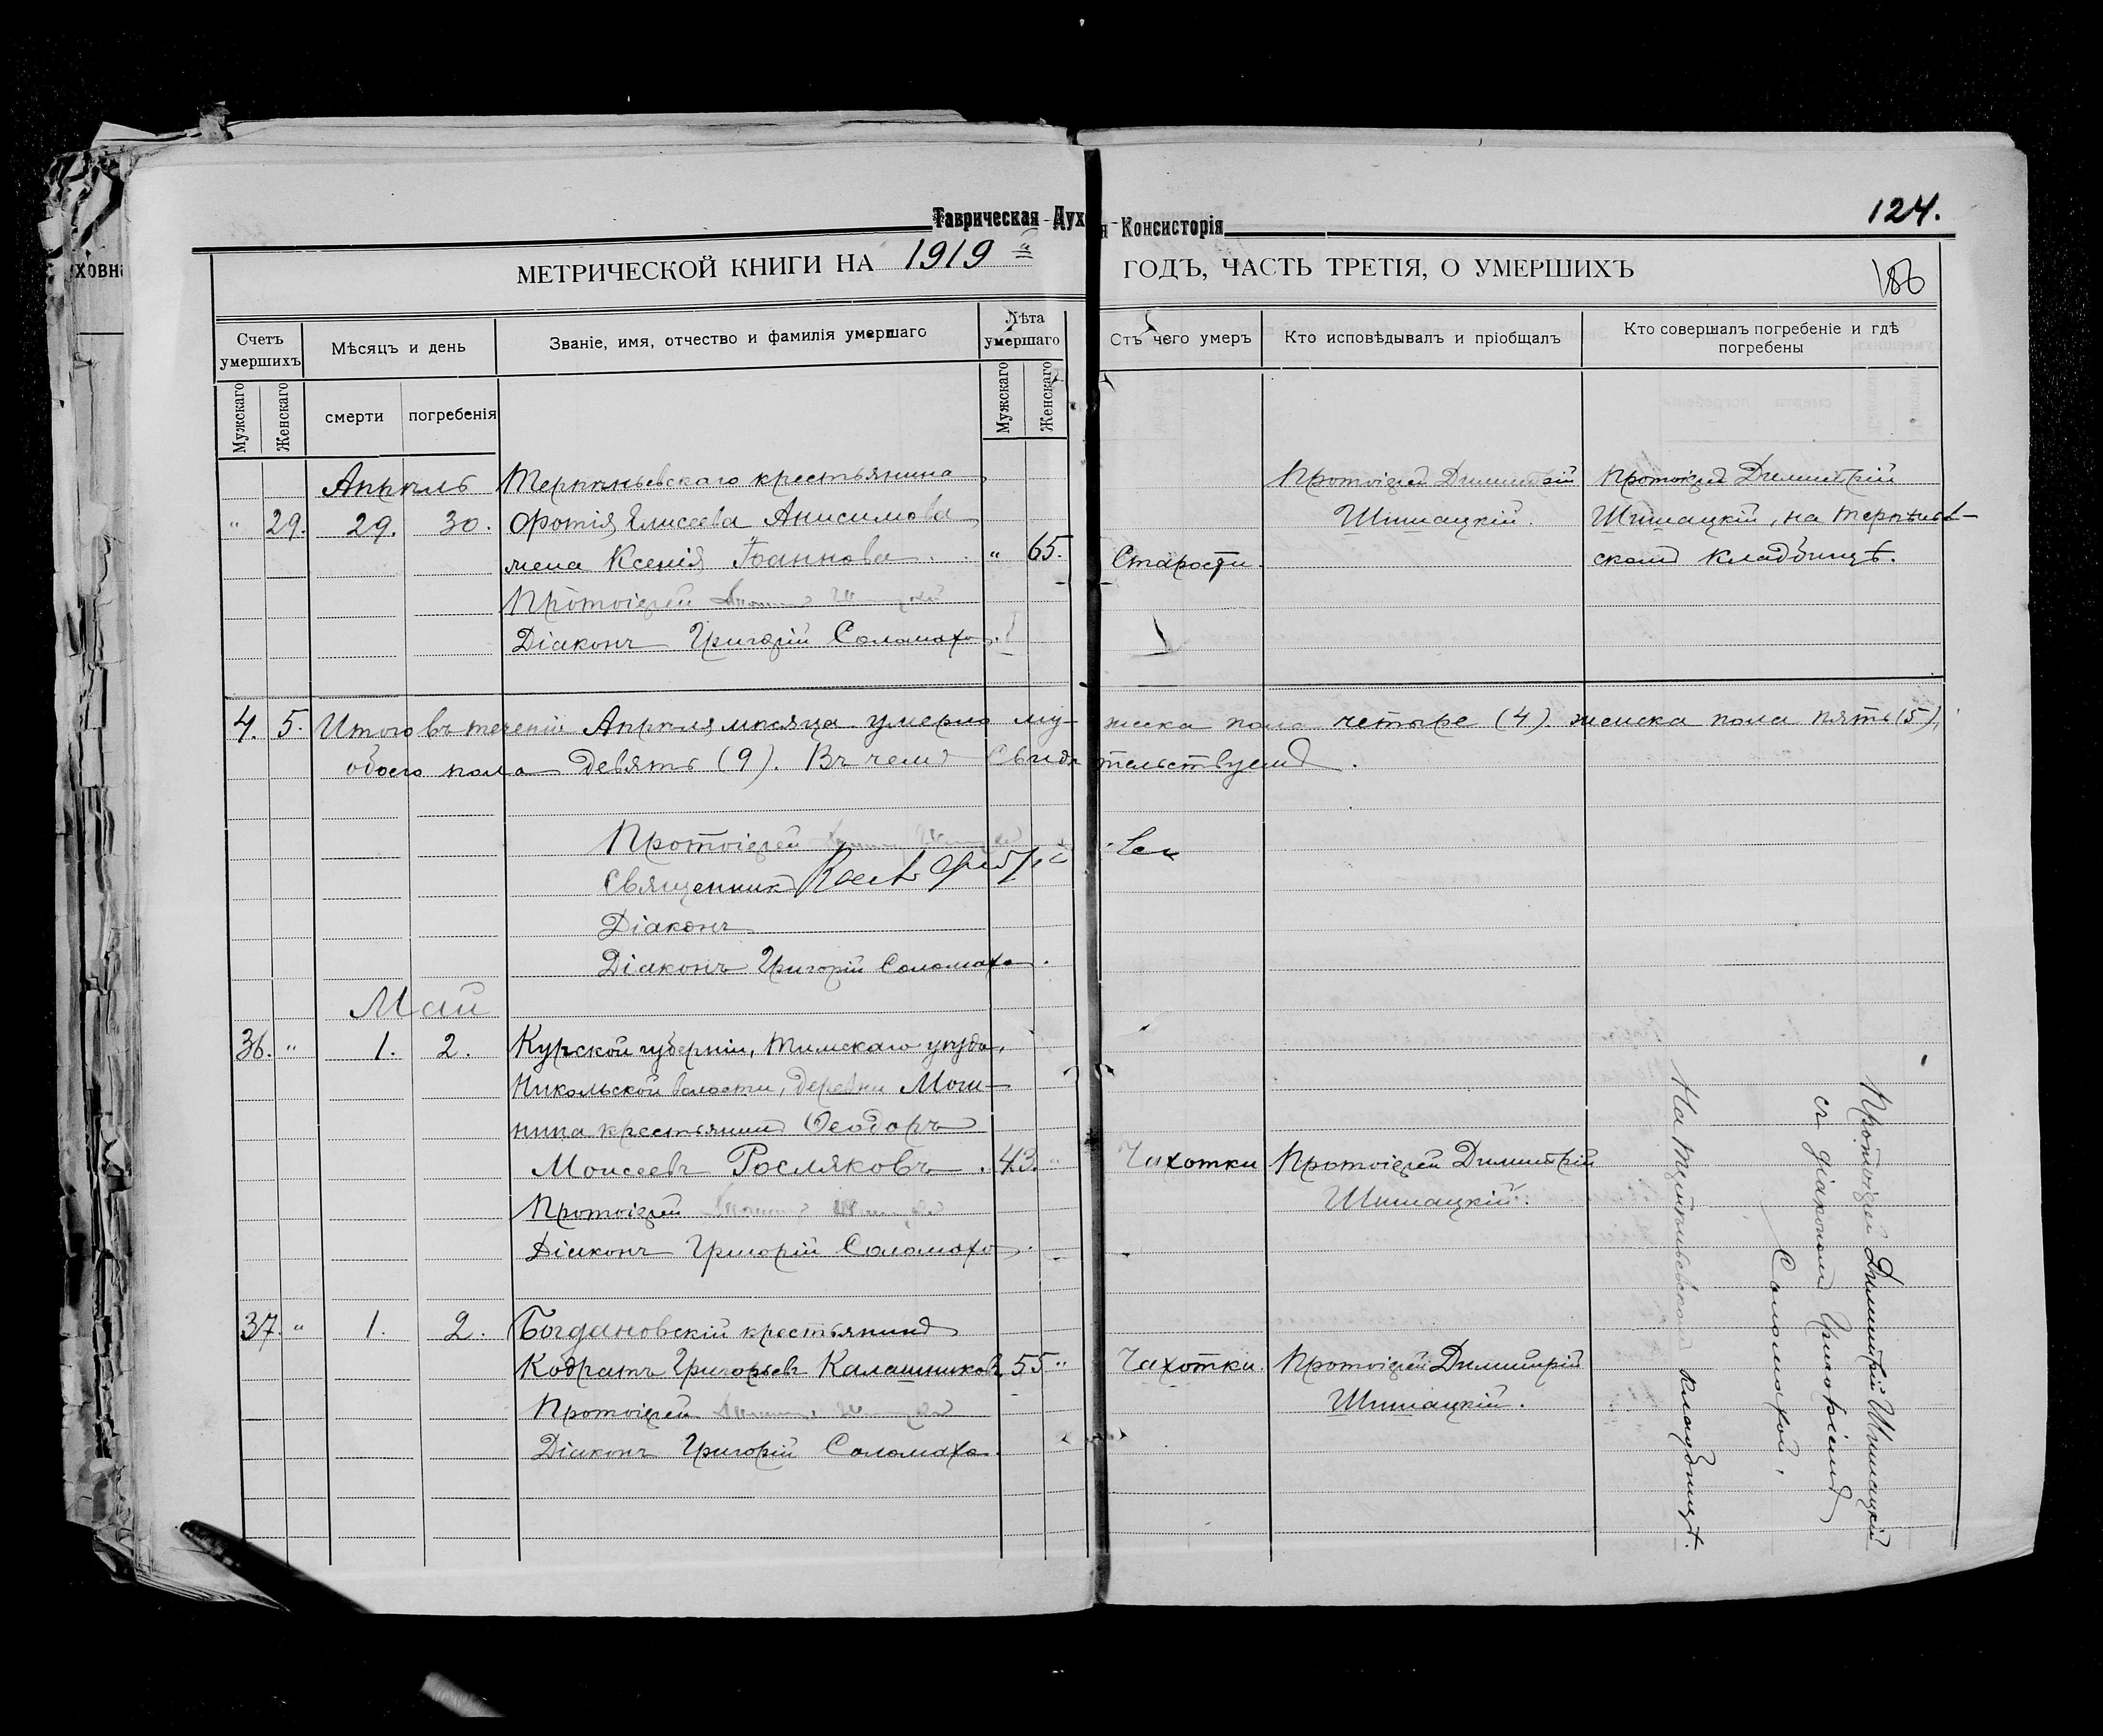 Таврическая Дух я Консисторія
124.
ховн
МЕТРИЧЕСКОЙ КНИГИ НА 1919 й ГОДЪ, ЧАСТЬ ТРЕТІЯ, О УМЕРШИХЪ
186
Счетъ умершихъ
Мѣсяцъ и день
Званіе, имя, отчество и фамилія умершаго
Лѣта умершаго
Отъ чего умеръ
Кто исповѣдывалъ и пріобщалъ
Кто совершалъ погребеніе и гдѣ погребены
Мужскаго
Женскаго
смерти
погребенія
Мужскаго
Женскаго
Апрѣль Терпѣньевскаго крестьянина Протоіерей Димитрій Протоіерей Димитрій
" 29. 29. 30. Фотія Елисеева Анисимова Шишацкій. Шишацкій, на терпѣньев-
жена Ксенія Іоаннова " 65. Старости. скомъ кладбищѣ.
Протоіерей
Діаконъ Григорій Соломаха.
4. 5. Итого въ теченіи Апрѣля мѣсяца умерло му- жеска пола четыре (4) женска пола пять (5),
обоего пола девять (9). Въ чемъ свидѣ тельствуемъ.
Протоіерей
Священникъ
Діаконъ
Діаконъ Григорій Соломаха.
Май
36. " 1. 2. Курской губерніи, Тимскаго уѣзда,
Никольской волости, деревни Мош-
нина крестьянинъ Ѳеодоръ
Моисеевъ Росляковъ. 43. " Чахотки Протоіерей Димитрій
Протоіерей Шишацкій.
Діаконъ Григорій Соломаха.
37. " 1. 2. Богдановскій крестьянинъ
Кодратъ Григорьевъ Калашниковъ 55 " Чахотки. Протоіерей Димитрій
Протоіерей Шишацкій.
Діаконъ Григорій Соломаха.
Протоіерей Димитрій Шишацкій
съ діакономъ Григоріемъ
Соломахой,
На Терпѣньевскомъ кладбищѣ.